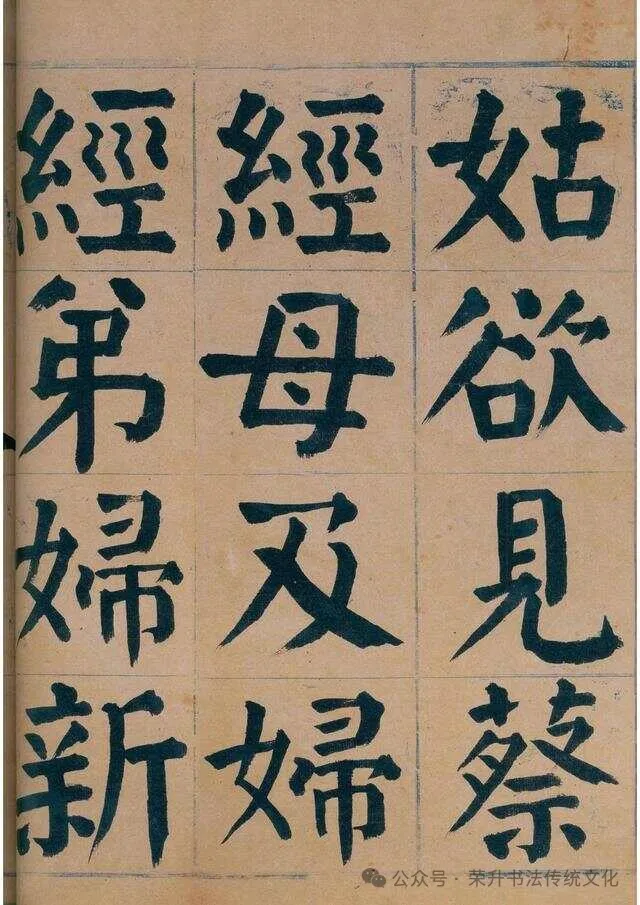 姑欲見蔡
經母及婦
經弟婦新
公众号·荣升书法传统文化